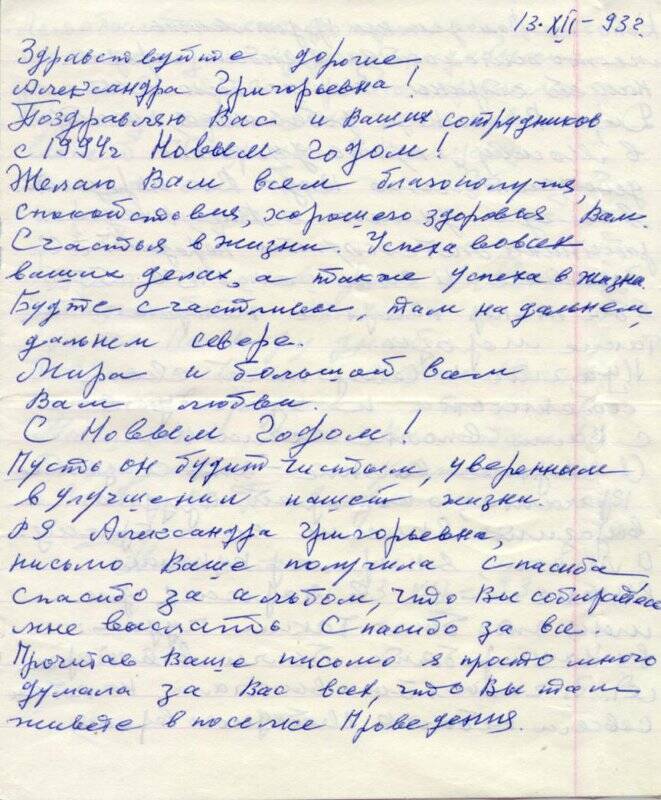 13.XII-93г.
Здравствуйте дорогие
Александра Григорьевна!
Поздравляю Вас и Ваших сотрудников
с 1994г Новым годом!
Желаю Вам всем благополучия,
спокойствия, хорошего здоровья Вам.
Счастья в жизни. Успеха вовсех
ваших делах, а также успеха в жизни.
Будте счастливы, там на дальнем,
дальнем севере.
Мира и большой вам
Вам любви.
С Новым Годом!
Пусть он будит чистым, уверенным
в улучшении нашей жизни.
Я Александра Григорьевна,
письмо Ваше получила Спасибо
спасибо за альбом, что Вы собираетесь
мне выслать Спасибо за все
Прочитав Ваше письмо я просто много
думала за Вас всех, что Вы там
живете в поселке Проведения.